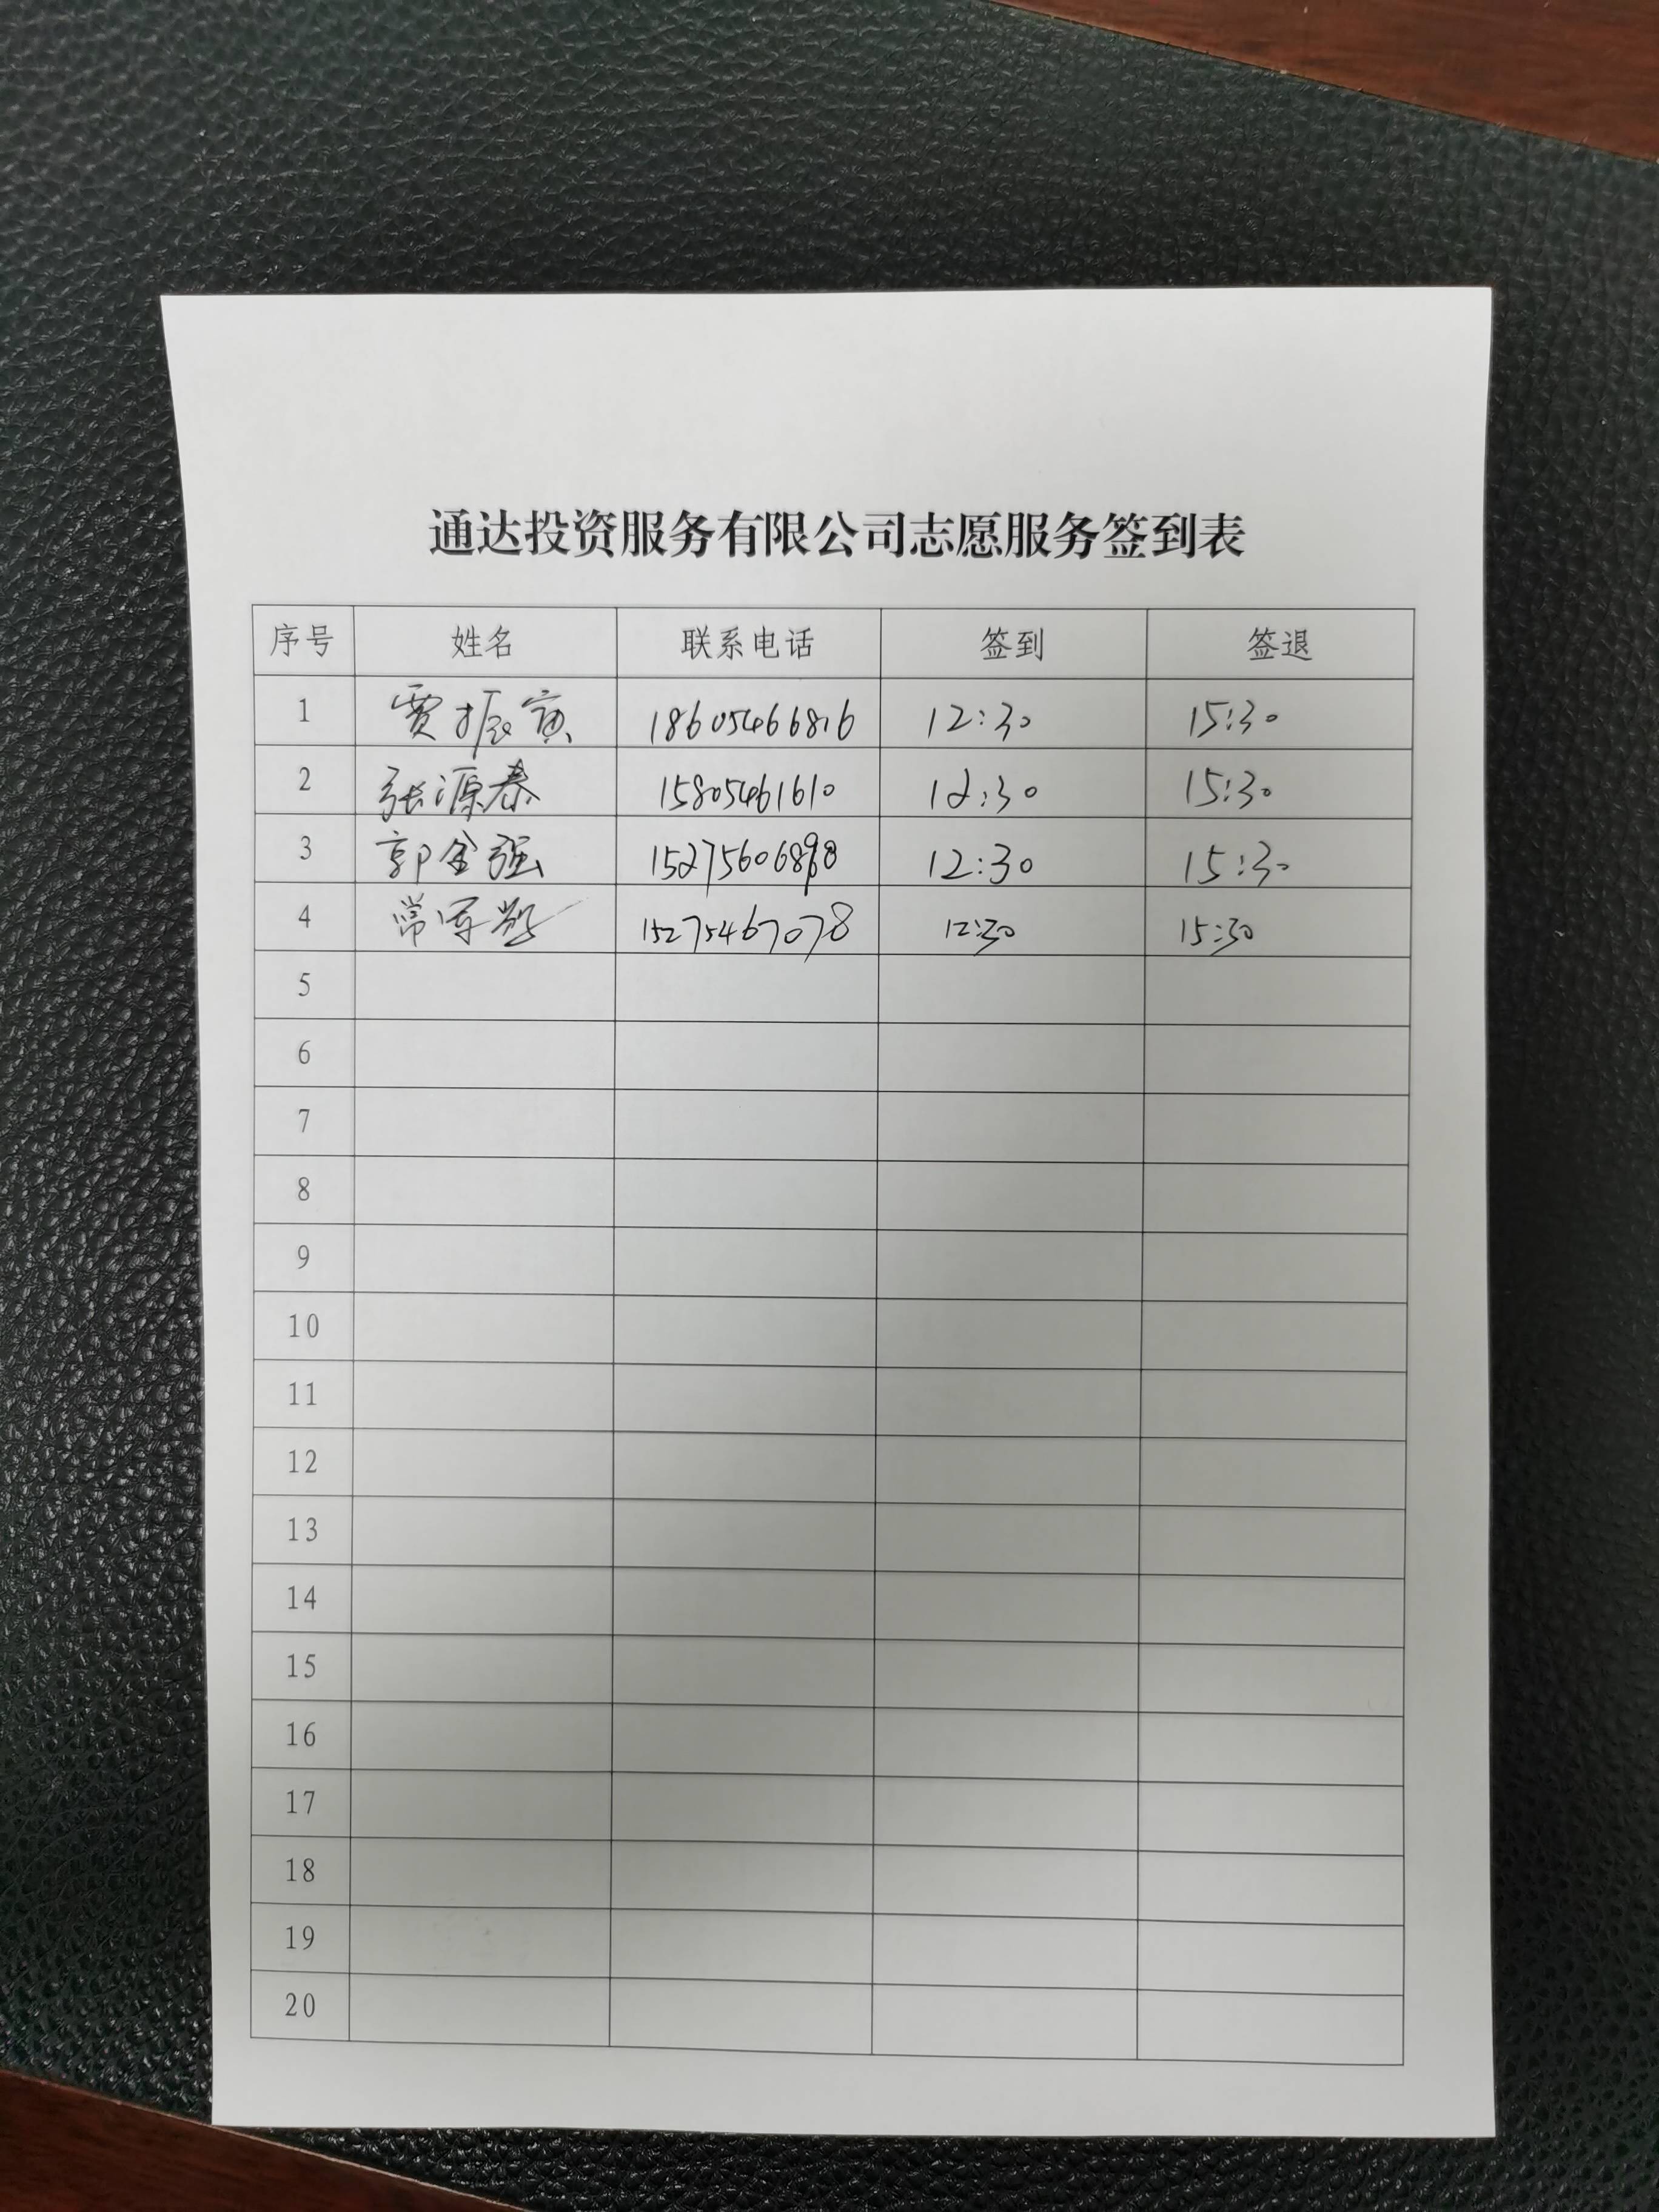 通达投资服务有限公司志愿服务签到表
序号 姓名 联系电话 签到 签退
1 贾振寅 18605466816 12:30 15:30
2 张源泰 15805461610 12:30 15:30
3 郭金强 12:30 15:30
4 常军凯 15275467078 12:30 15:30
5
6
7
8
9
10
11
12
13
14
15
16
17
18
19
20